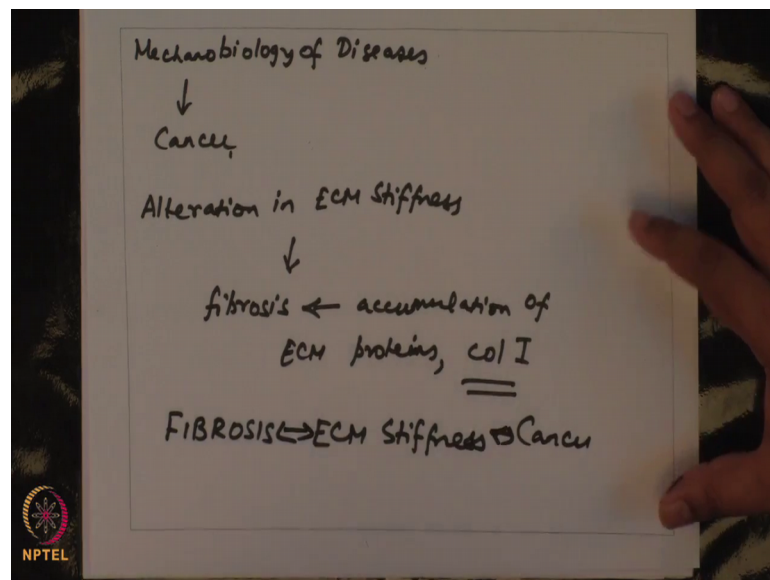 Mechanobiology of Diseases
↓
Cancer
Alteration in ECM Stiffness
↓
fibrosis ← accumulation of
ECM proteins, col I
FIBROSIS ↔ ECM Stiffness → Cancer
NPTEL